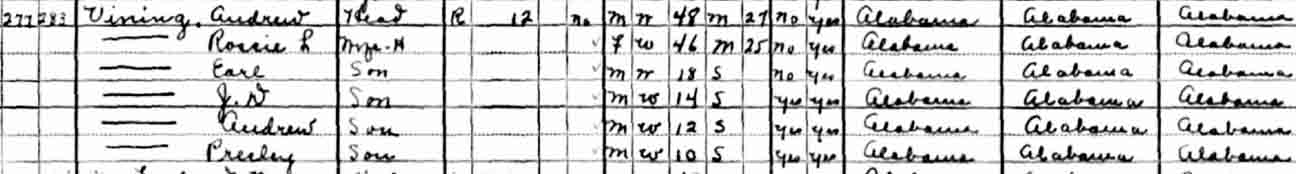 277 283 Vining, Andrew Head R 12 no M W 48 M 27 no yes Alabama Alabama Alabama
Rossie L Wife-H F W 46 M 25 no yes Alabama Alabama Alabama
Earl Son M W 18 S no yes Alabama Alabama Alabama
J. D Son M W 14 S yes yes Alabama Alabama Alabama
Andrew Son M W 12 S yes yes Alabama Alabama Alabama
Presley Son M W 10 S yes yes Alabama Alabama Alabama